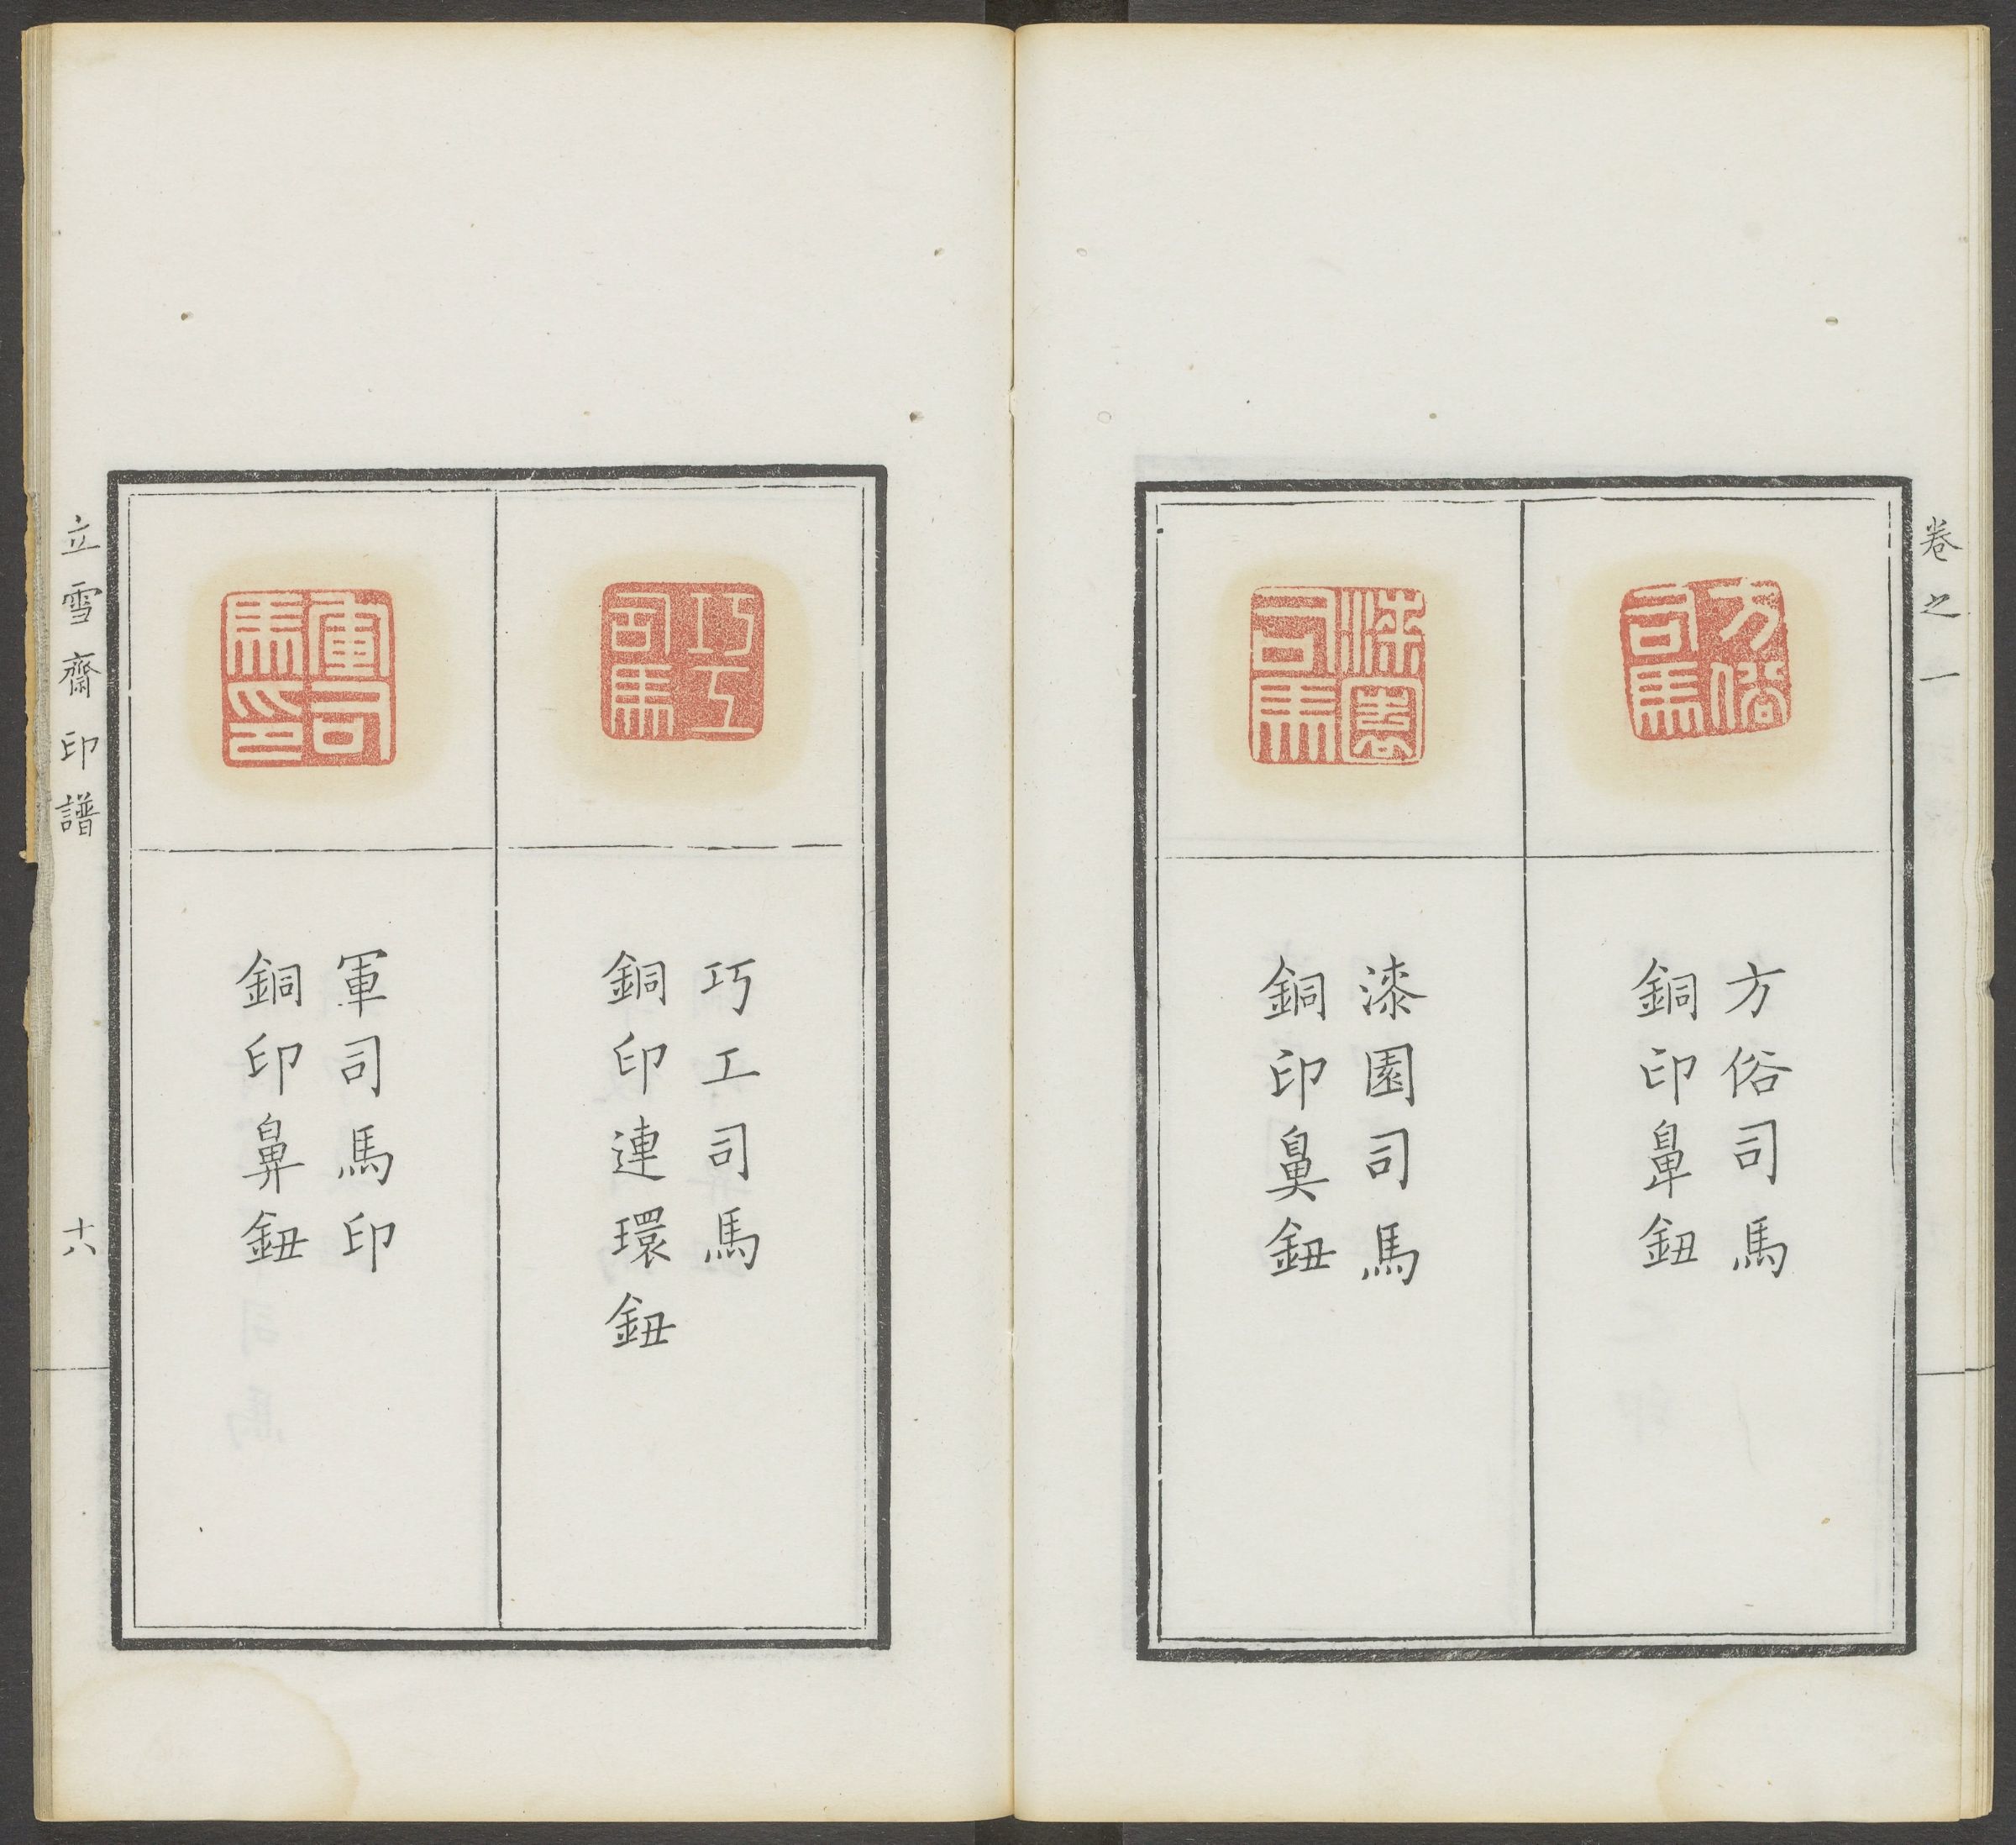 卷之一
方俗司馬
方俗司馬
銅印鼻鈕
漆園司馬
漆園司馬
銅印鼻鈕
巧工司馬
巧工司馬
銅印連環鈕
軍司馬印
軍司馬印
銅印鼻鈕
立雪齋印譜
十六